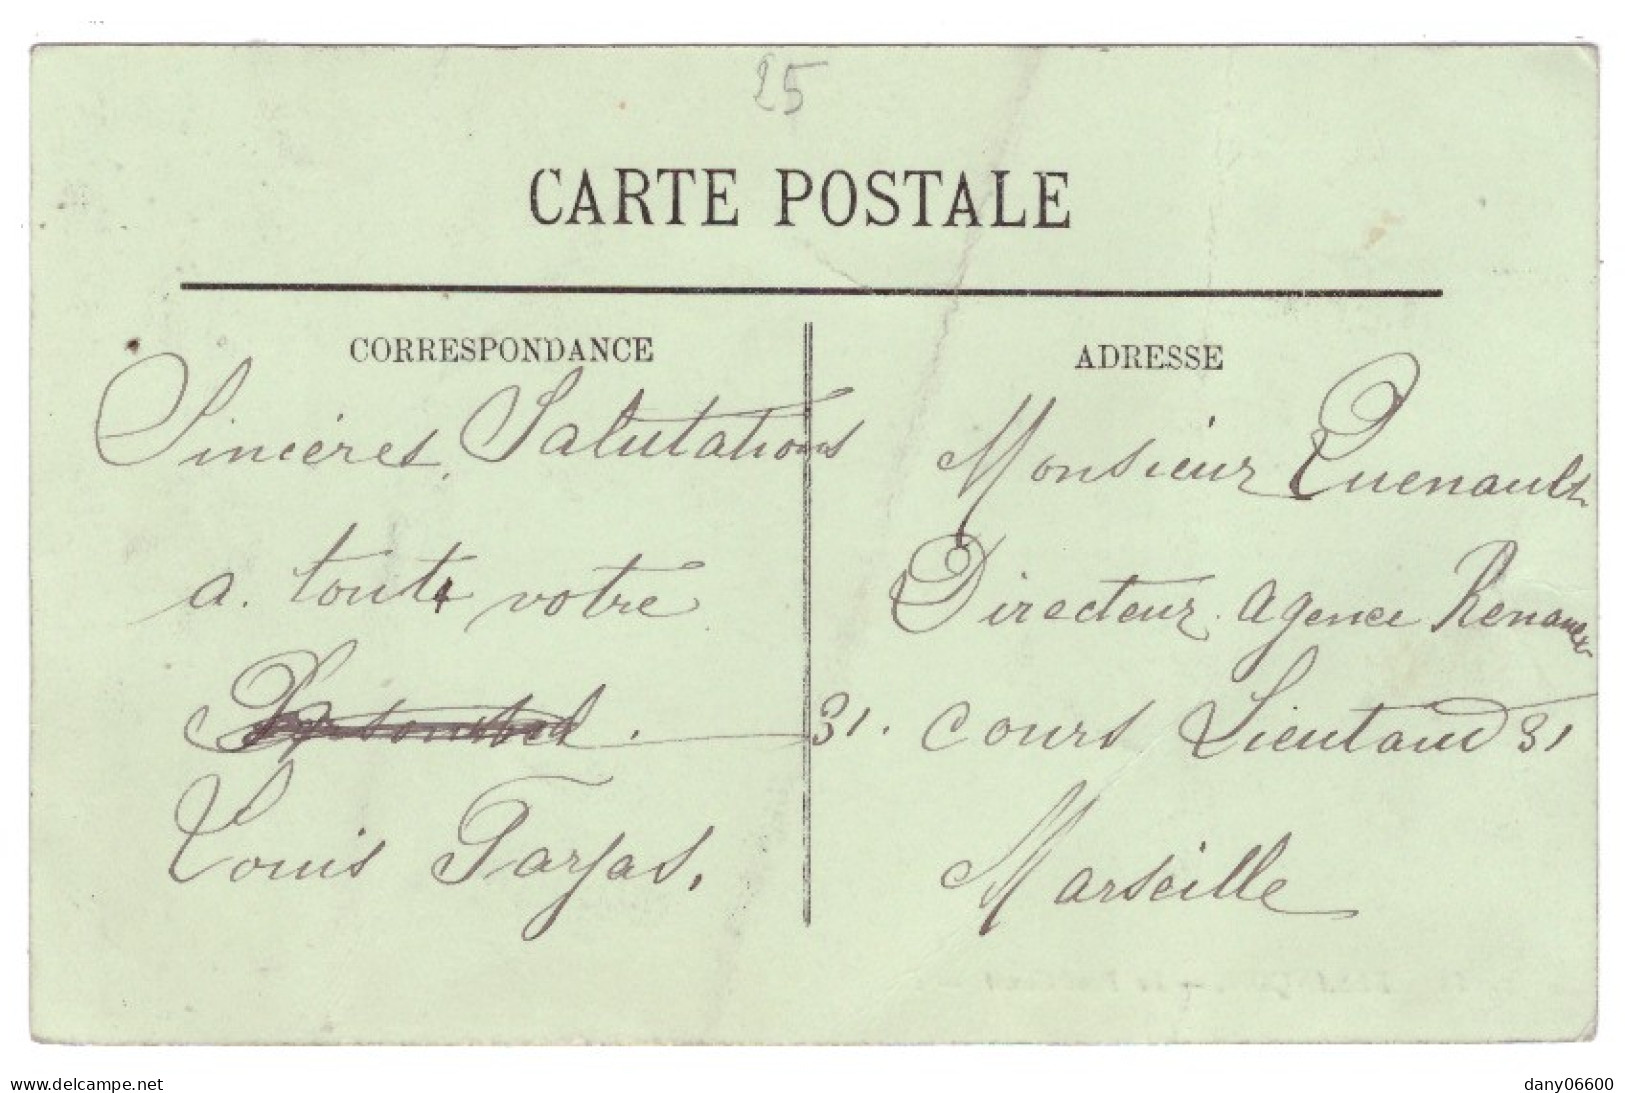 25
CARTE POSTALE
CORRESPONDANCE
Sincéres Salutations
a. toute votre
Louis Farjas.
ADRESSE
Monsieur Quenault
Directeur. agence Renaux
31. Cours Lieutaud 31
Marseille
www.delcampe.net
dany06600